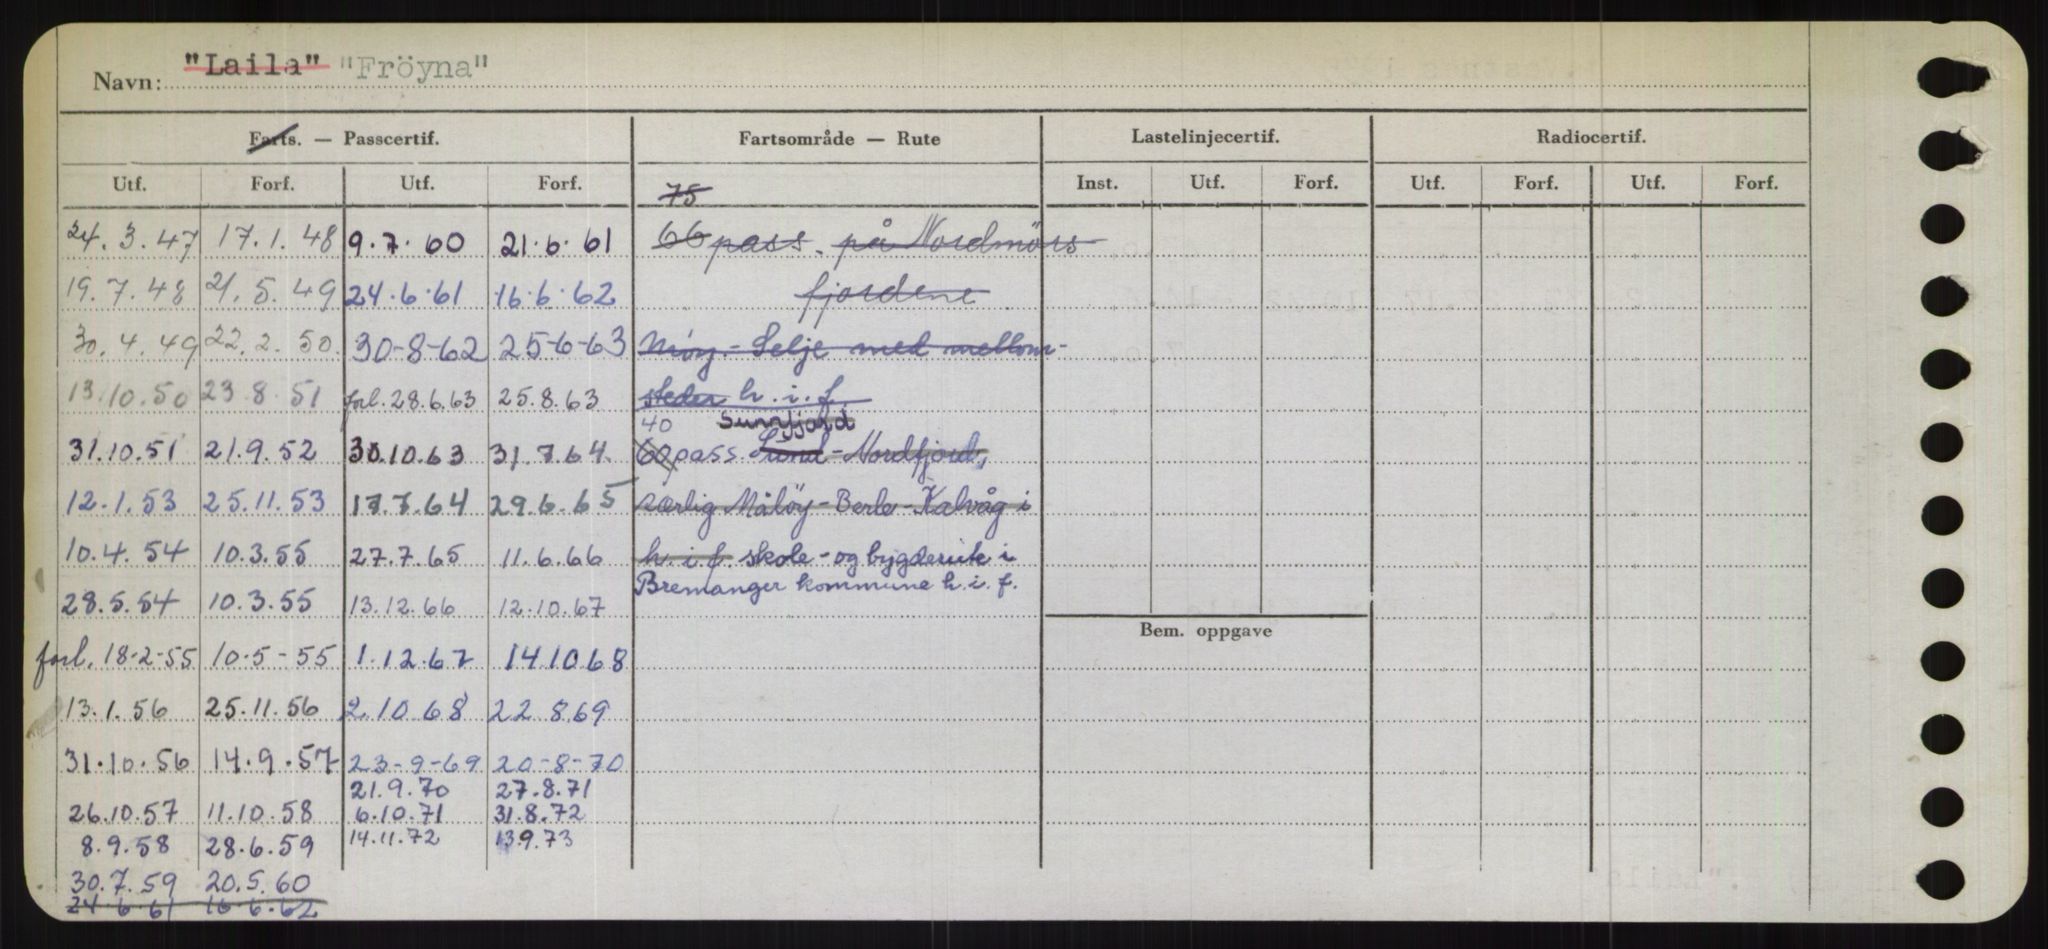 Navn: "Laila" "Fröyna"
Farts. — Passcertif. Fartsområde — Rute Lastelinjecertif. Radiocertif.
Utf. Forf. Utf. Forf. Inst. Utf. Forf. Utf. Forf. Utf. Forf.
75
24. 3. 47 17. 1. 48 9. 7. 60 21. 6. 61 66 pass. på Nordmørs
19. 7. 48 21. 5. 49 24. 6. 61 16. 6. 62 fjordene
30. 4. 49 22. 2. 50 30-8-62 25-6-63 - Selje med mellom-
13. 10. 50 23. 8. 51 forl. 28. 6. 63 25. 8. 63 steder h. i. f.
40 Sunnfjord
31. 10. 51 21. 9. 52 30. 10. 63 31. 7. 64. 60 pass. - Nordfjord,
12. 1. 53 25. 11. 53 17. 7. 64 29. 6. 65 særlig Måløy - Berle - Kalvåg i
10. 4. 54 10. 3. 55 27. 7. 65 11. 6. 66 h. i. f. skole - og bygderute i
Bremanger kommune h. i. f.
28. 5. 54 10. 3. 55 13. 12. 66 12. 10. 67
Bem. oppgave
forl. 18-2-55 10-5-55 1. 12. 67 14 10 68
13. 1. 56 25. 11. 56 2. 10 68 22 8 69
31. 10. 56 14. 9. 57 23-9-69 20-8-70
21. 9. 70 27. 8. 71
26. 10. 57 11. 10. 58 6. 10. 71 31. 8. 72
8. 9. 58 28. 6. 59 14. 11. 72 13 9. 73
30. 7. 59 20. 5. 60
24. 6. 61 16. 6. 62